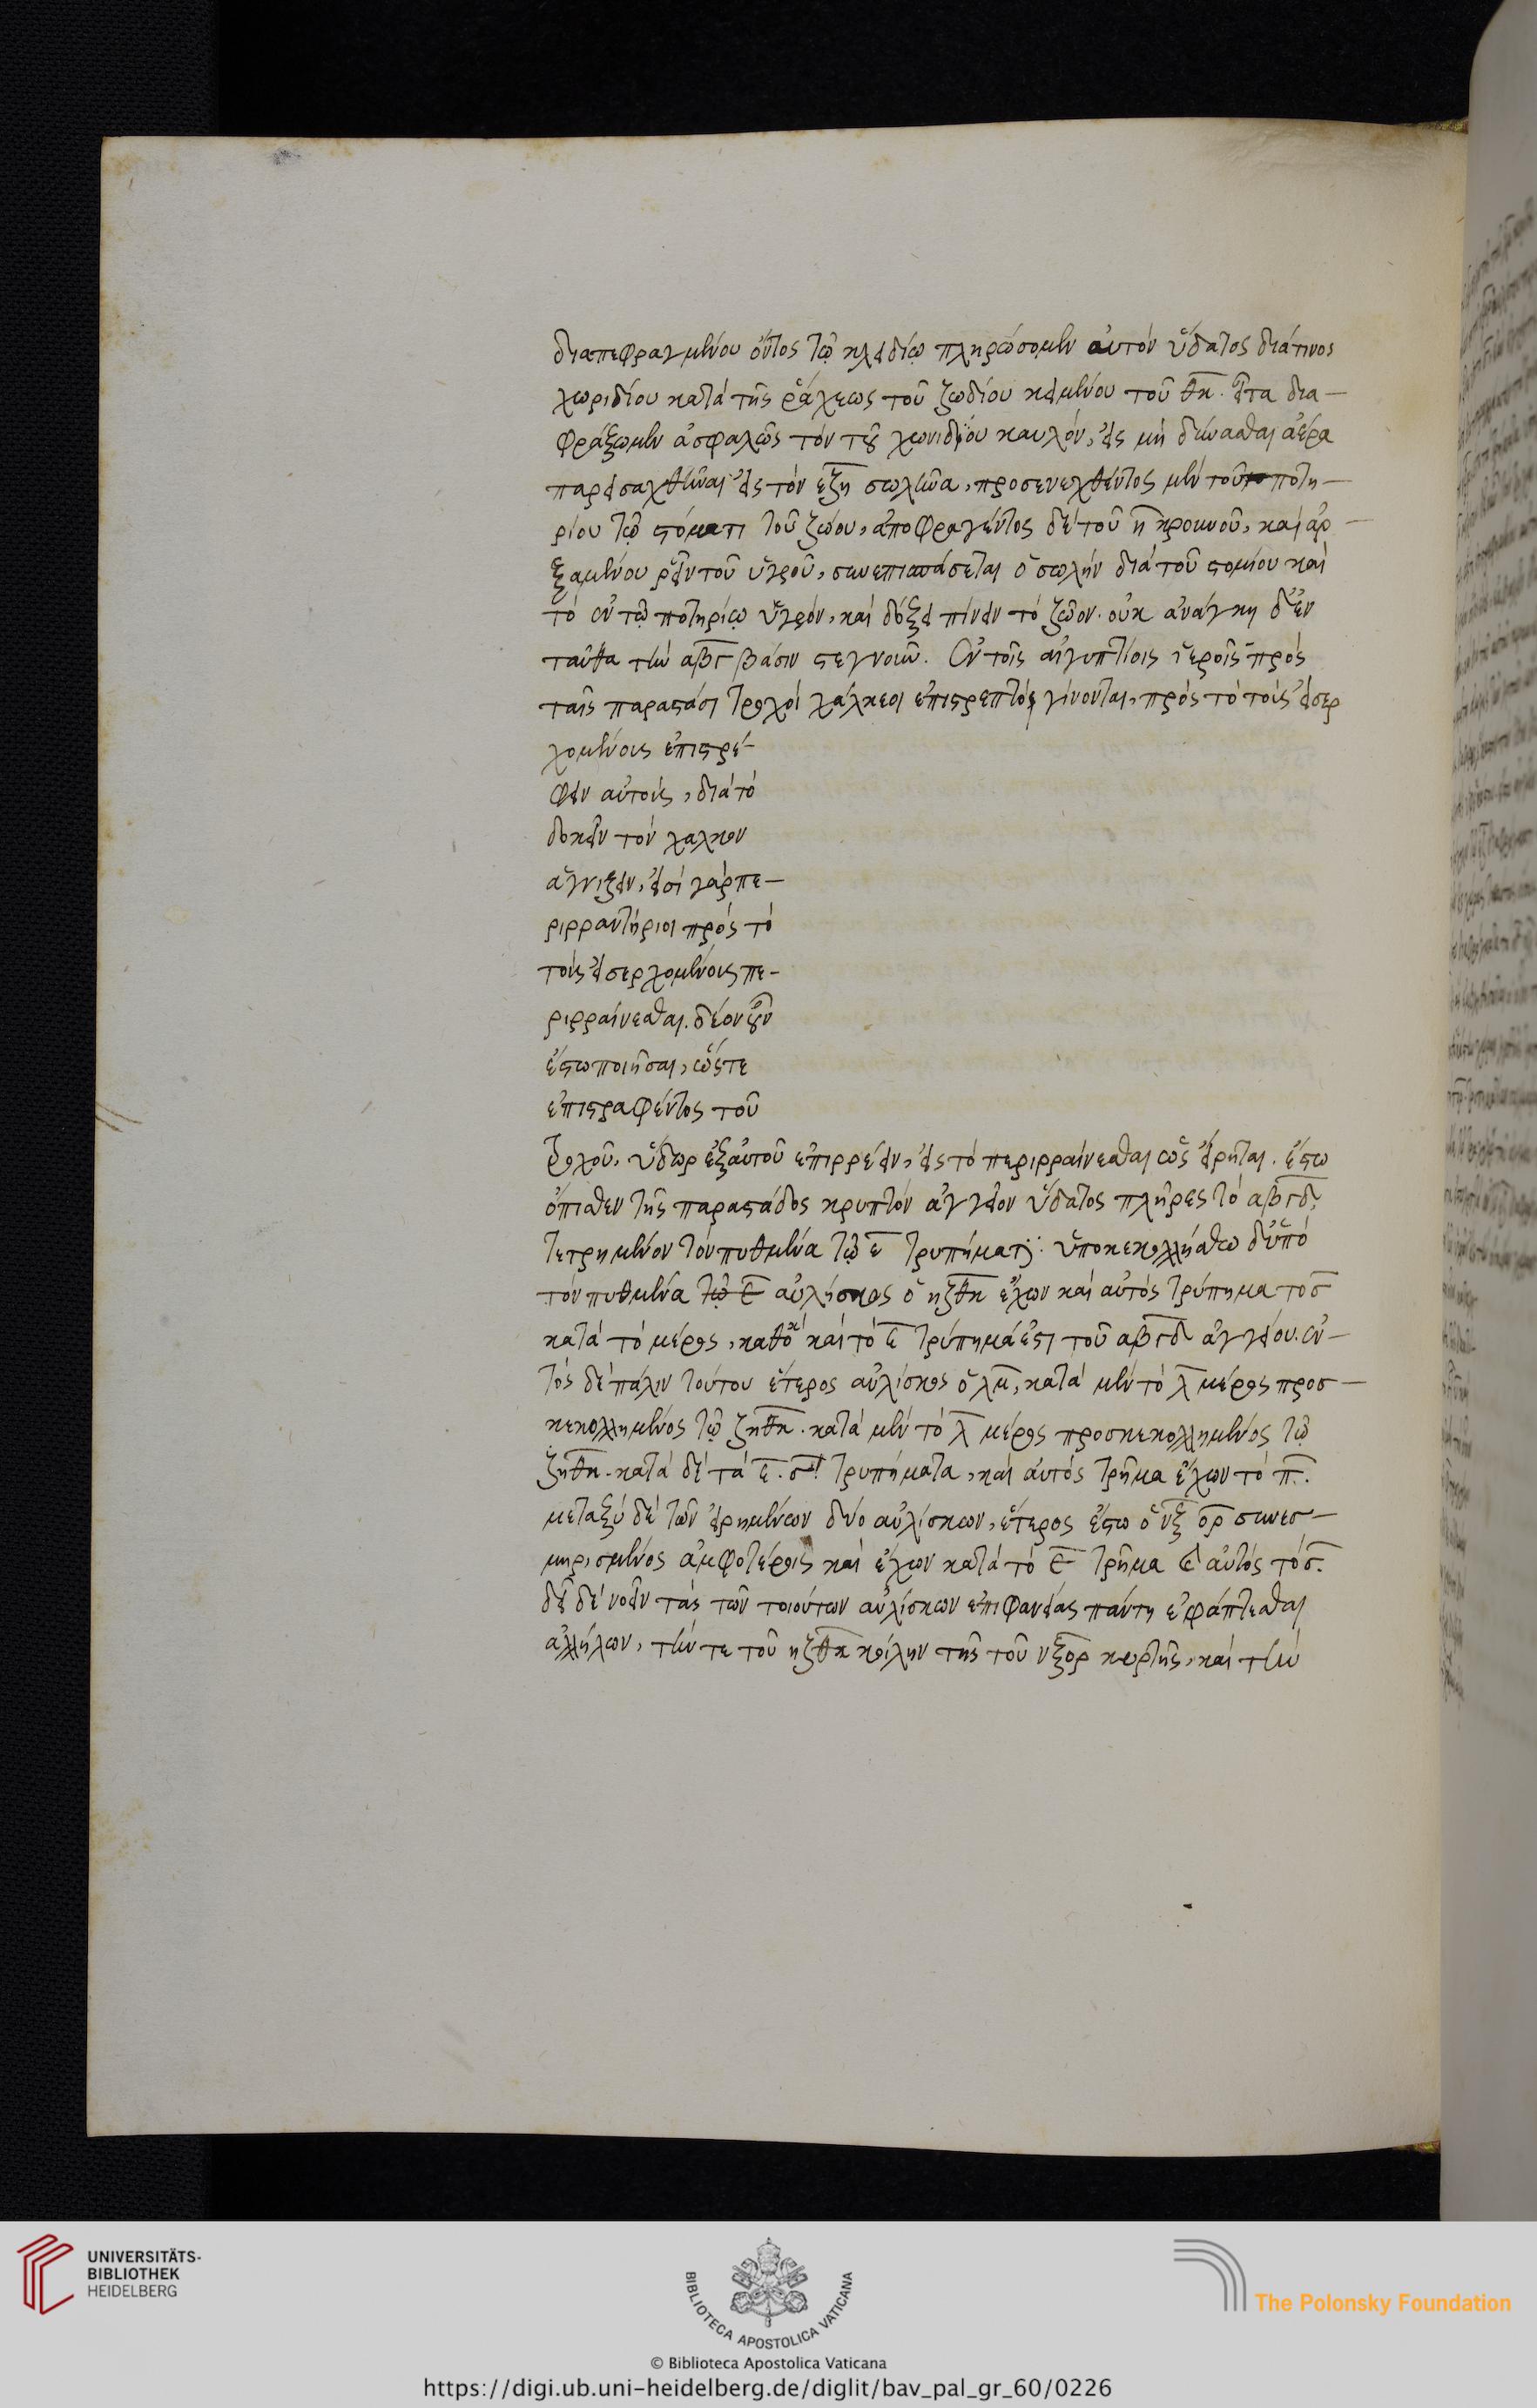 διαπεφραγμένου ὄντος τῷ κλειδίῳ πληρώσομεν αὐτὸν ὕδατος διά τινος
χωριδίου κατὰ τῆς ῥάχεως τοῦ ζωδίου κειμένου τοῦ θκ. εἶτα δια-
φράξωμεν ἀσφαλῶς τὸν τοῦ χωνιδίου καυλόν, εἰς μὴ δύνασθαι ἀέρα
παρεισαχθῆναι εἰς τὸν εζη σωλῆνα, προσενεχθέντος μὲν τοῦ ποτη-
ρίου τῷ στόματι τοῦ ζώου, ἀποφραγέντος δὲ τοῦ η κρουνοῦ, καὶ ἀρ-
ξαμένου ῥεῖν τοῦ ὑγροῦ, συνεπισπάσεται ὁ σωλὴν διὰ τοῦ στομίου καὶ
τὸ ἐν τῷ ποτηρίῳ ὑγρόν, καὶ δόξει πίνειν τὸ ζῶον. οὐκ ἀνάγκη δ' ἐν
ταῦθα τὴν αβγ βάσιν στεγνοῦν. Ἐν τοῖς αἰγυπτίοις ἱεροῖς πρὸς
ταῖς παραστάσι τροχοὶ χάλκεοι ἐπιστρεπτοὶ γίνονται, πρὸς τὸ τοὺς εἰσερ
χομένους ἐπιστρέ-
φειν αὐτούς, διὰ τὸ
δοκεῖν τὸν χαλκον
ἁγνίζειν, εἰσὶ γὰρ πε-
ριρραντήριοι πρὸς τὸ
τοὺς εἰσερχομένους πε-
ριρραίνεσθαι. δέον οὖν
ἔστω ποιῆσαι, ὥστε
ἐπιστραφέντος τοῦ
τροχοῦ, ὕδωρ ἐξ αὐτοῦ ἐπιρρέειν, εἰς τὸ περιρραίνεσθαι ὡς εἴρηται. ἔστω
ὄπισθεν τῆς παραστάδος κρυπτὸν ἀγγεῖον ὕδατος πλῆρες τὸ αβγδ,
τετρημένον τὸν πυθμένα τῷ ε τρυπήματι. ὑποκεκολλήσθω δ' ὑπὸ
τὸν πυθμένα τῷ ε αὐλίσκος ὁ ηζθκ ἔχων καὶ αὐτὸς τρύπημα τὸ ϛ
κατὰ τὸ μέρος, καθὸ καὶ τὸ ε τρύπημά ἐστι τοῦ αβγδ ἀγγείου. ἐν-
τὸς δὲ πάλιν τούτου ἕτερος αὐλίσκος ὁ λμ, κατὰ μὲν τὸ λ μέρος προσ-
κεκολλημένος τῷ ζηθκ. κατὰ μὲν τὸ λ μέρος προσκεκολλημένος τῷ
ζηθκ. κατὰ δὲ τὰ ε. ϛ. τρυπήματα, καὶ αὐτὸς τρῆμα ἔχων τὸ π.
μεταξὺ δὲ τῶν εἰρημένων δύο αὐλίσκων, ἕτερος ἔστω ὁ νξ ορ συνεσ-
μηρισμένος ἀμφοτέροις καὶ ἔχων κατὰ τὸ ε τρῆμα καὶ αὐτὸς τὸ ϛ.
δεῖ δὲ νοεῖν τὰς τῶν τοιούτων αὐλίσκων ἐπιφανείας πάντη ἐφάπτεσθαι
ἀλλήλων, τήν τε τοῦ ηζθκ κοίλην τῆς τοῦ νξορ κυρτῆς, καὶ τὴν
UNIVERSITÄTS-
BIBLIOTHEK
HEIDELBERG
BIBLIOTECA APOSTOLICA VATICANA
The Polonsky Foundation
© Biblioteca Apostolica Vaticana
https://digi.ub.uni-heidelberg.de/diglit/bav_pal_gr_60/0226